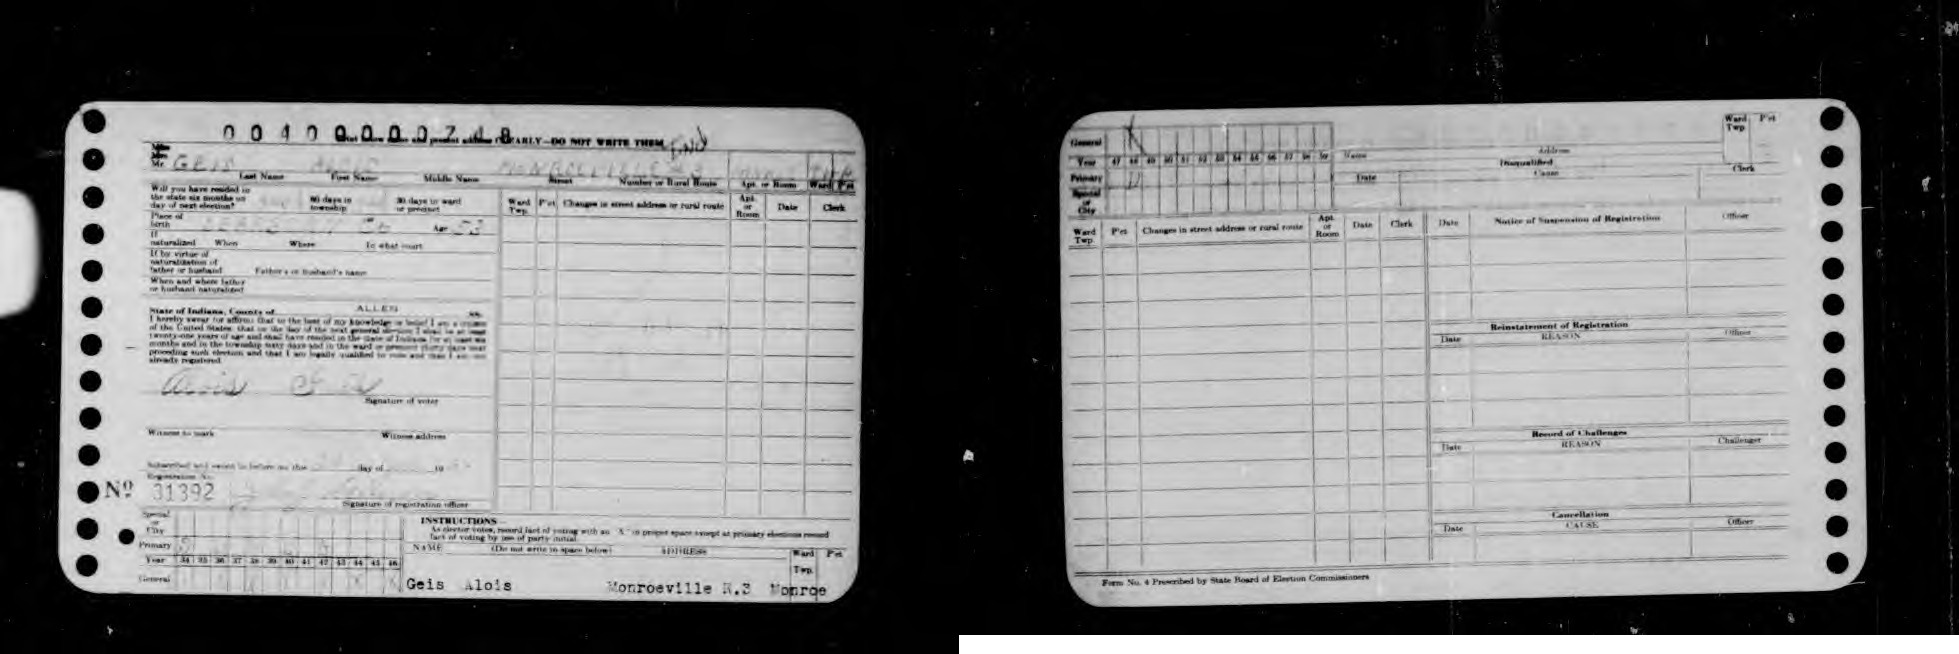 004000000748
Mr. GEIS ALOIS MONROEVILLE
Last Name First Name Middle Name Street Number or Rural Route Apt. or Room Ward P'ct
Will you have resided in
the state six months on
day of next election?
60 days in
township
30 days in ward
or precinct
Ward
Twp.
P'ct
Changes in street address or rural route
Apt.
or
Room
Date
Clerk
Place of
birth
Age 53
If
naturalized When Where In what court
If by virtue of
naturalization of
father or husband Father's or husband's name
When and where father
or husband naturalized
State of Indiana, County of ALLEN ss.
I hereby swear (or affirm) that to the best of my knowledge or belief I am a citizen
of the United States; that on the day of the next general election I shall be at least
twenty-one years of age and shall have resided in the state of Indiana for at least six
months and in the township sixty days and in the ward or precinct thirty days next
preceding such election and that I am legally qualified to vote and that I am not
already registered.
Alois Geis
Signature of voter
Witness to mark Witness address
Subscribed and sworn to before me this day of 19
Registration No.
Nº 31392
Signature of registration officer
Special
or
City
Primary
Year 34 35 36 37 38 39 40 41 42 43 44 45 46
General
INSTRUCTIONS—
As elector votes, record fact of voting with an "X" in proper space except at primary elections record
fact of voting by use of party initial.
NAME (Do not write in space below) ADDRESS
Ward
Twp.
P'ct
Geis Alois Monroeville R.3 Monroe
General
Year 47 48 49 50 51 52 53 54 55 56 57 58 59
Primary
Special
or
City
Name Address
Ward
Twp.
P'ct
Disqualified
Date Cause Clerk
Ward
Twp.
P'ct
Changes in street address or rural route
Apt.
or
Room
Date
Clerk
Date Notice of Suspension of Registration Officer
Reinstatement of Registration
Date REASON Officer
Record of Challenges
Date REASON Challenger
Cancellation
Date CAUSE Officer
Form No. 4 Prescribed by State Board of Election Commissioners